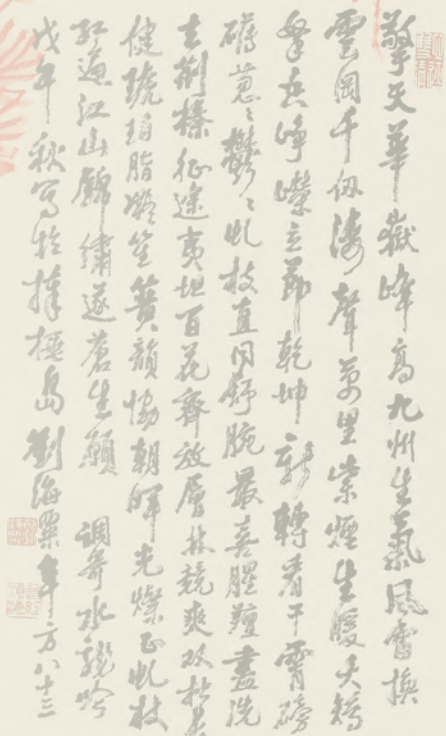 擎天華嶽峰高九州生氣風雷換
雲岡千仞濤聲萬里紫煙生暖天矯
冬峥嶸立節乾坤新轉看干霄磅
礴蔥〻鬱〻虬枝直同舒腕最喜腥羶盡洗
去荊榛征途夷坦百花齊放層林競爽双
健琥珀脂凝笙簧韻協朝暉光燦正虬枝
紅遍江山錦繡遂蒼生願 調寄水龍吟
戊午秋寫於揮極島劉海粟年方八十三